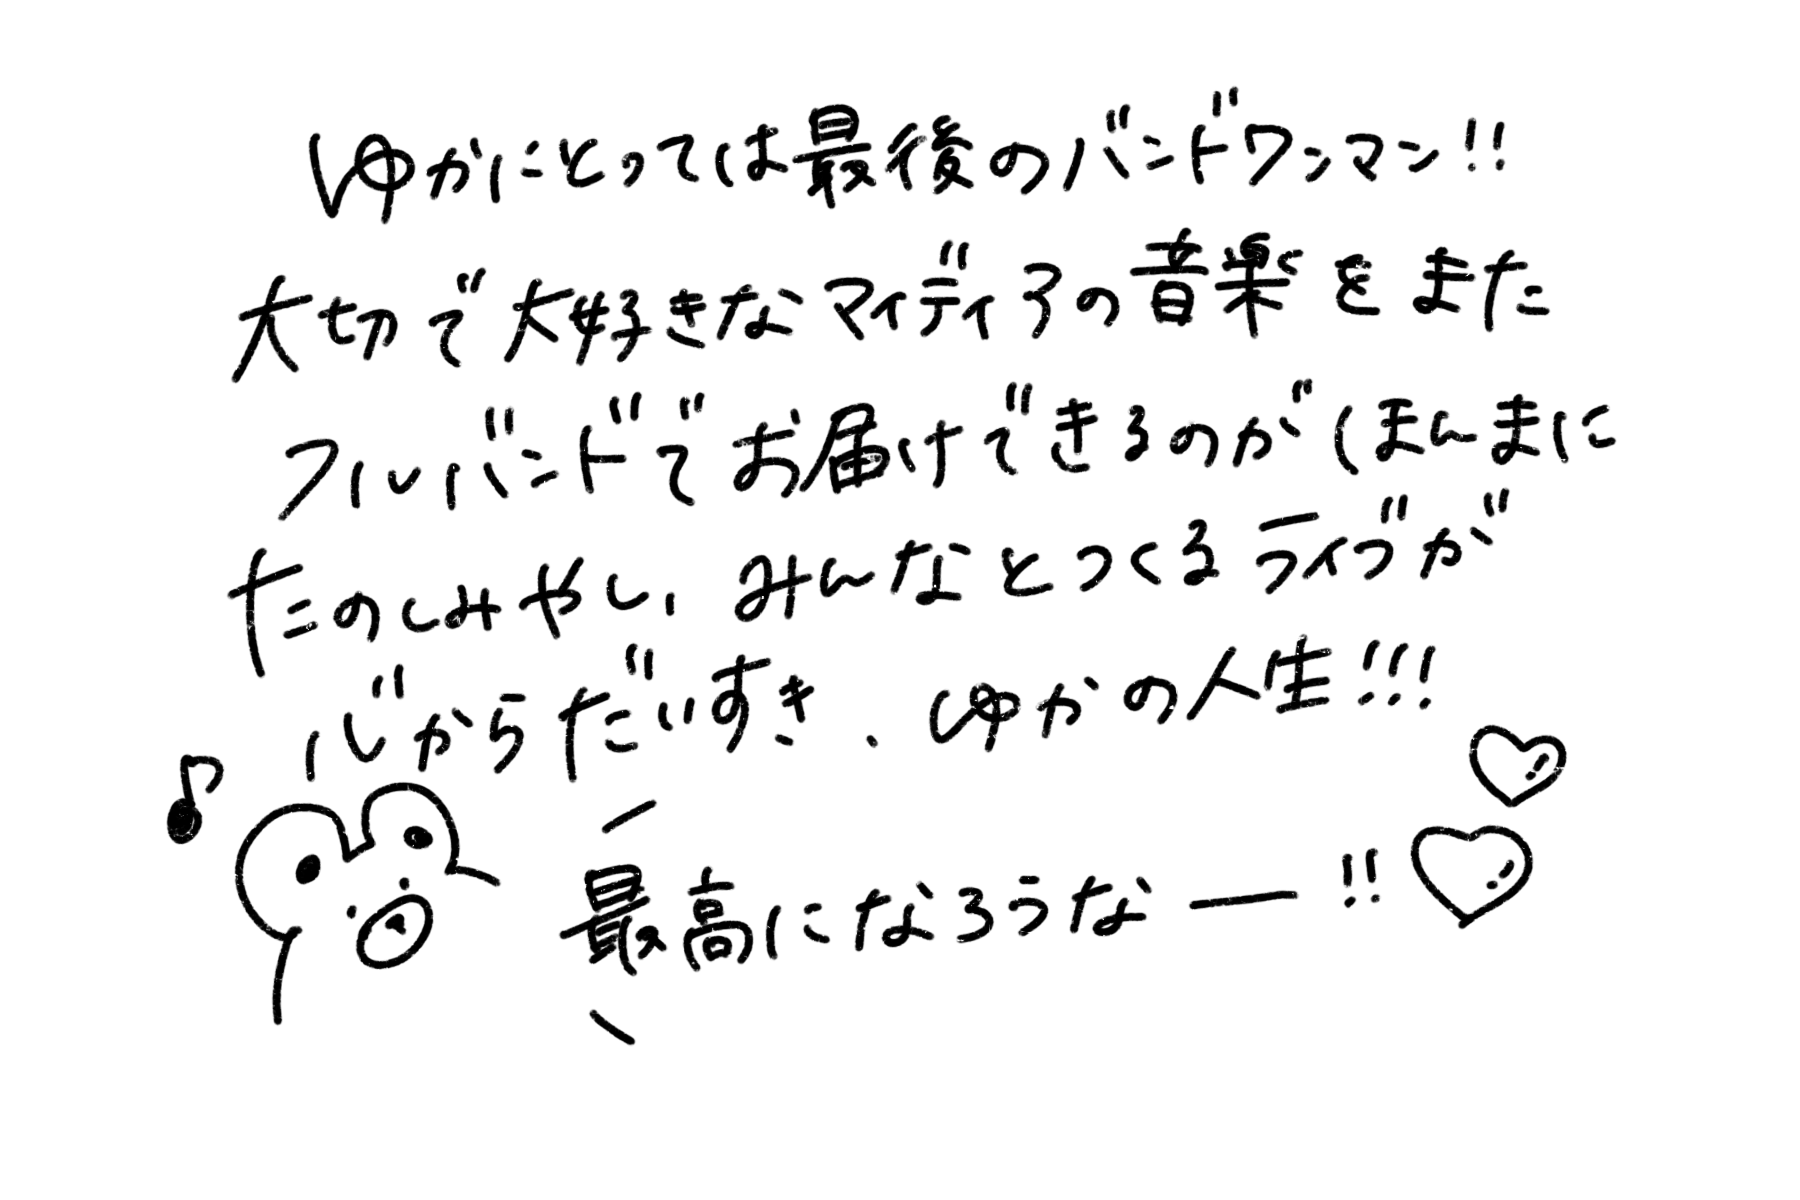 ゆかにとっては最後のバンドワンマン!!
大切で大好きなマイディアの音楽をまた
フルバンドでお届けできるのがほまんまに
たのしみやし、みんなとつくるライブが
心からだいすき、ゆかの人生!!!
最高になろうなー!!